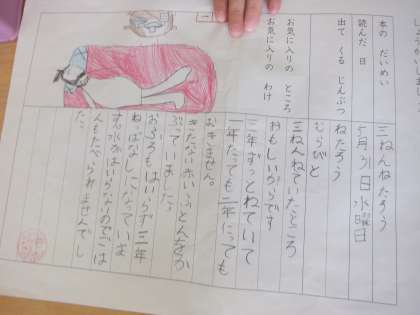 しょうかいしまし
本の だいめい
三ねんねたろう
読んだ 日
5月31日水曜日
出て くる じんぶつ
ねたろう
むらびと
お気に入りの ところ
三ねんねていたところ
お気に入りの わけ
おもしいからです
三年ずっとねていて
一年たっても二年にっても
おきません。
きたない赤いふとんをか
ぶっていました。
おふろもはいらず三年
ねっぱなしになっていま
す
がはいらないのでごは
んもたべられませんでし
た。